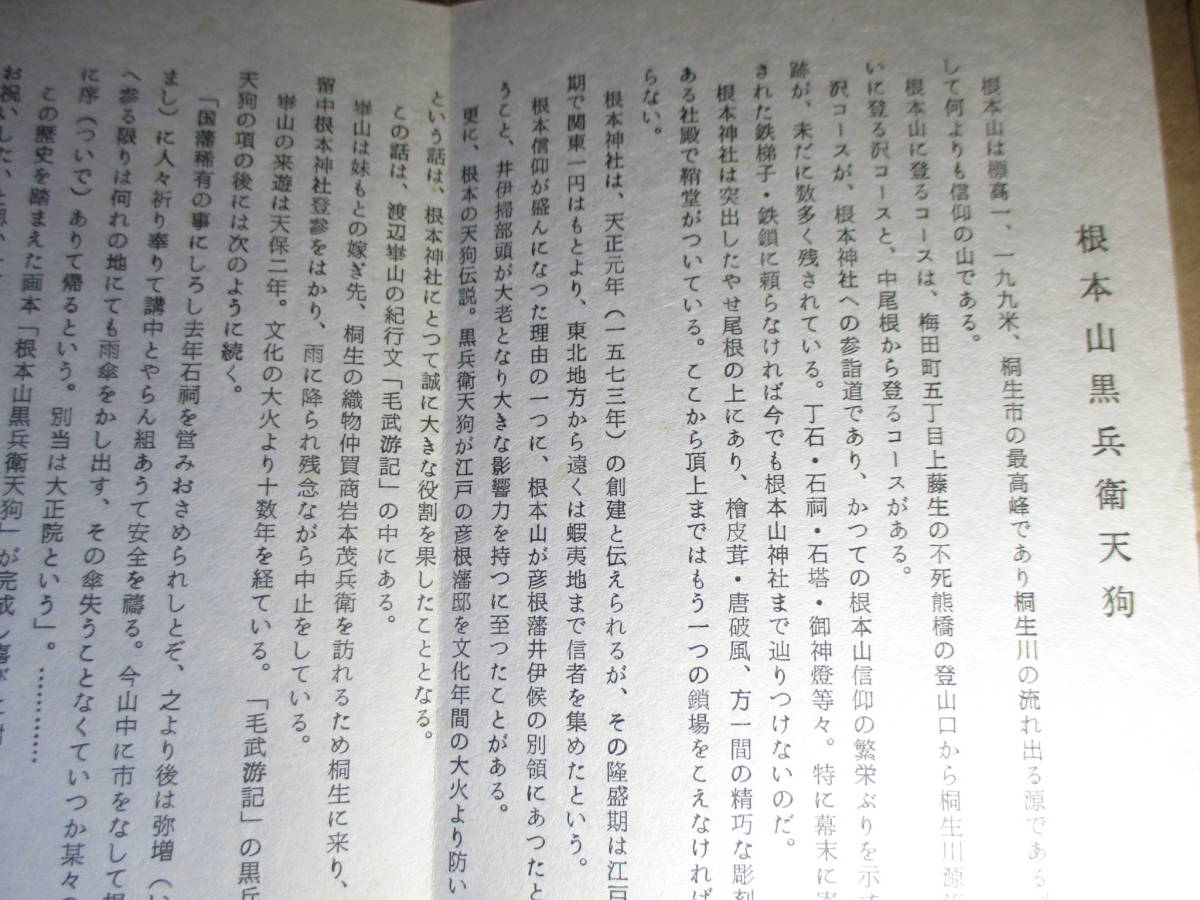 根本山黒兵衛天狗
根本山は標高一、一九九米、桐生市の最高峰であり桐生川の流れ出る源である。
して何よりも信仰の山である。
根本山に登るコースは、梅田町五丁目上藤生の不死熊橋の登山口から桐生川源流
いに登る沢コースと、中尾根から登るコースがある。
沢コースが、根本神社への参詣道であり、かつての根本山信仰の繁栄ぶりを示す
跡が、未だに数多く残されている。丁石・石祠・石塔・御神燈等々。特に幕末に寄
された鉄梯子・鉄鎖に頼らなければ今でも根本山神社まで辿りつけないのだ。
根本神社は突出したやせ尾根の上にあり、檜皮茸・唐破風、方一間の精巧な彫刻
ある社殿で鞘堂がついている。ここから頂上まではもう一つの鎖場をこえなければ
らない。
根本神社は、天正元年（一五七三年）の創建と伝えられるが、その隆盛期は江戸
期で関東一円はもとより、東北地方から遠くは蝦夷地まで信者を集めたという。
根本信仰が盛んになった理由の一つに、根本山が彦根藩井伊候の別領にあつたと
うこと、井伊掃部頭が大老となり大きな影響力を持つに至つたことがある。
更に、根本の天狗伝説。黒兵衛天狗が江戸の彦根藩邸を文化年間の大火より防い
という話は、根本神社にとつて誠に大きな役割を果したこととなる。
この話は、渡辺崋山の紀行文「毛武游記」の中にある。
崋山は妹もとの嫁ぎ先、桐生の織物仲買商岩本茂兵衛を訪れるため桐生に来り、
留中根本神社登参をはかり、雨に降られ残念ながら中止をしている。
崋山の来遊は天保二年。文化の大火より十数年を経ている。「毛武游記」の黒兵
天狗の項の後には次のように続く。
「国藩稀有の事にしろし去年石祠を営みおさめられしとぞ、之より後は弥増（い
まし）に人々祈り奉りて講中とやらん組あうて安全を禱る。今山中に市をなして根
へ参る限りは何れの地にても雨傘をかし出す、その傘失うことなくていつか某々の
に序（ついで）ありて帰るという。別当は大正院という」。…………
この歴史を踏まえた画本「根本山黒兵衛天狗」が完成し喜び
お祝いした